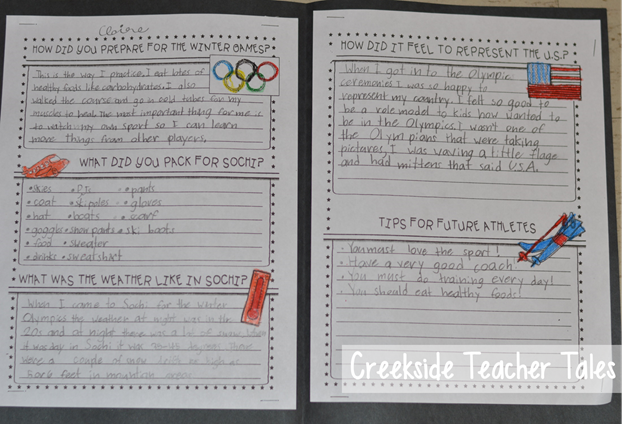 Claire
HOW DID YOU PREPARE FOR THE WINTER GAMES?
This is the way I practice, I eat lotes of
healthy foods like carbohydrates. I also
walked the course and go in cold tubes for my
muscles to heal. The most important thing for me is
to watch my own sport so I can learn
more things from other players.
WHAT DID YOU PACK FOR SOCHI?
• skies • PJs • pants
• coat • ski poles • gloves
• hat • boats • scarf
• goggles • snow pants • ski boots
• food • sweater
• drinks • sweatshirt
WHAT WAS THE WEATHER LIKE IN SOCHI?
When I came to Sochi for the winter
Olympics the weather at night was in the
20s and at night there was a lot of snow. When
it was day in Sochi it was
were a couple of snow
feet in mountain areas
HOW DID IT FEEL TO REPRESENT THE U.S.?
1
When I got in to the Olympic
ceremonies I was so happy to
represent my country. I felt so good to
be a role model to kids how wanted to
be in the Olympics. I wasn't one of
the Olympians that were taking
pictures, I was waving a little flage
and had mittens that said U.S.A.
TIPS FOR FUTURE ATHLETES
• You must love the sport!
• Have a very good coach
• You must do training every day!
• You should eat healthy foods!
Creekside Teacher Tales